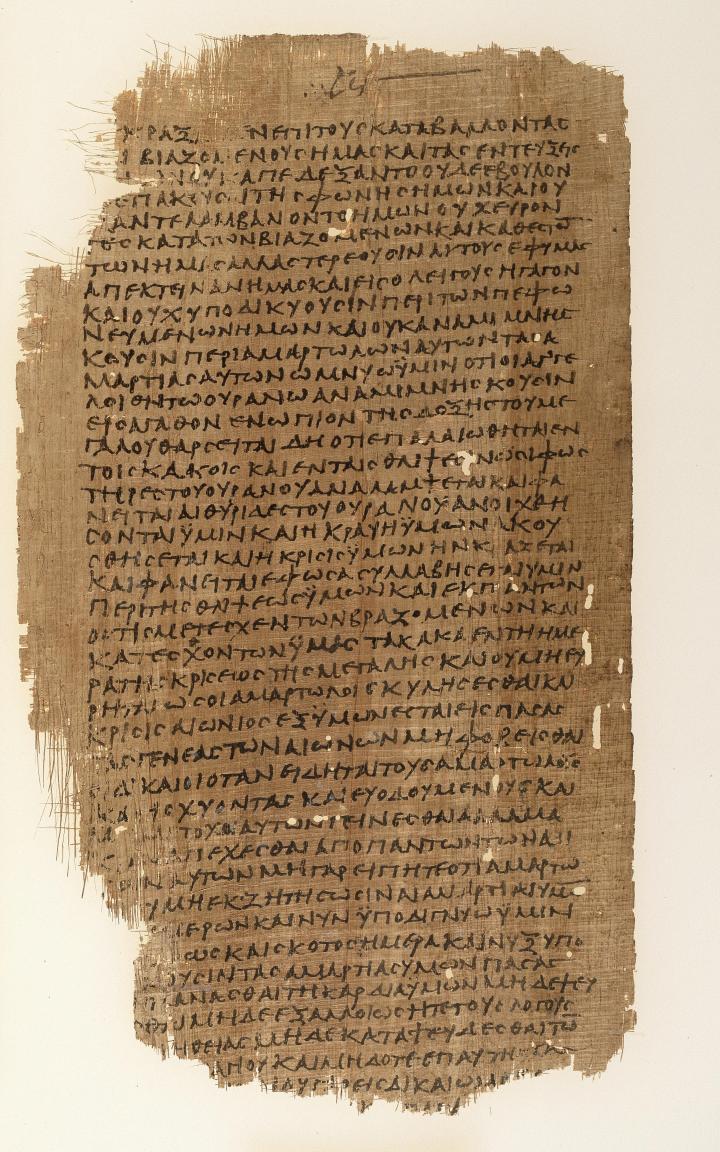 ΚΡΑΞ ΝΕΠΙΤΟΥΣΚΑΤΑΒΑΛΛΟΝΤΑΣ
ΒΙΑΖΟΜΕΝΟΥΣΗΜΑΣΚΑΙΤΑΣΕΝΤΕΥΞΕΙΣ
ΑΠΕΔΕΞΑΝΤΟΟΥΔΕΕΒΟΥΛΟΝ
ΕΠΑΚΟΥΣ ΤΗΣΦΩΝΗΣΗΜΩΝΚΑΙΟΥ
ΑΝΤΕΛΑΜΒΑΝΟΝΤΟΗΜΩΝΟΥΧΕΥΡΟΝ
ΤΕΣΚΑΤΑΤΩΝΒΙΑΖΟΜΕΝΩΝΚΑΙΚΑΘΕΣΤΩ̅
ΤΩΝΗΜΑΣΑΛΛΑΣΤΕΡΕΟΥΣΙΝΑΥΤΟΥΣΕΦΥΜΑΣ
ΑΠΕΚΤΕΙΝΑΝΗΜΑΣΚΑΙΕΙΣΟΛΕΙΓΟΥΣΗΓΑΓΟΝ
ΚΑΙΟΥΧΥΠΟΔΙΚΥΟΥΣΙΝΠΕΡΙΤΩΝΠΕΦΩ
ΝΕΥΜΕΝΩΝΗΜΩΝΚΑΙΟΥΚΑΝΑΜΙΜΝΗΣ
ΚΟΥΣΙΝΠΕΡΙΑΜΑΡΤΩΛΩΝΑΥΤΩΝΤΑΣΑ
ΜΑΡΤΙΑΣΑΥΤΩΝΩΜΝΥΩΫΜΙΝΟΤΙΟΙΑΓΓΕ
ΛΟΙΕΝΤΩΟΥΡΑΝΩΑΝΑΜΙΜΝΗΣΚΟΥΣΙΝ
ΕΙΣΑΓΑΘΟΝΕΝΩΠΙΟΝΤΗΣΔΟΞΗΣΤΟΥΜΕ
ΓΑΛΟΥΘΑΡΣΕΙΤΑΙΔΗΟΤΙΕΠΑΛΑΙΩΘΗΤΑΙΕΝ
ΤΟΙΣΚΑΚΟΙΣΚΑΙΕΝΤΑΙΣΘΛΙΨΕΣΙΝΩΣΙΦΩΣ
ΤΗΡΕΣΤΟΥΟΥΡΑΝΟΥΑΝΑΛΑΜΨΕΤΑΙΚΑΙΦΑ
ΝΕΙΤΑΙΑΙΘΥΡΙΔΕΣΤΟΥΟΥΡΑΝΟΥΑΝΟΙΧΘΗ
ΣΟΝΤΑΙΫΜΙΝΚΑΙΗΚΡΑΥΗΫΜΩΝΑΚΟΥ
ΣΘΗΣΕΤΑΙΚΑΙΗΚΡΙΣΙΣΫΜΩΝΗΝΚΡΑΖΕΤΑΙ
ΚΑΙΦΑΝΕΙΤΑΙΕΦΩΣΑΣΥΛΛΑΒΗΣΕΤΑΙΥΜΙΝ
ΠΕΡΙΤΗΣΘΛΙΨΕΩΣΫΜΩΝΚΑΙΕΚΠΑΝΤΩΝ
ΟΣΤΙΣΜΕΤΕΣΧΕΝΤΩΝΒΡΑΖΟΜΕΝΩΝΚΑΙ
ΚΑΤΕΣΧΟΝΤΩΝΫΜΑΣΤΑΚΑΚΑΕΝΤΗΗΜΕ
ΡΑΤΗΣΚΡΙΣΕΩΣΤΗΣΜΕΓΑΛΗΣΚΑΙΟΥΜΗΕΥ
ΡΗΤΑΙΩΣΟΙΑΜΑΡΤΩΛΟΙΣΚΥΛΗΣΕΣΘΑΙΚΑΙ
ΚΡΙΣΙΣΑΙΩΝΙΟΣΕΞΥΜΩΝΕΣΤΑΙΕΙΣΠΑΣΑΣ
ΤΑΣΓΕΝΕΑΣΤΩΝΑΙΩΝΩΝΜΗΦΟΒΕΙΣΘΑΙ
ΔΙΚΑΙΟΙΟΤΑΝΕΙΔΗΤΑΙΤΟΥΣΑΜΑΡΤΩΛΟΥΣ
ΚΑΤΙΣΧΥΟΝΤΑΣΚΑΙΕΥΟΔΟΥΜΕΝΟΥΣΚΑΙ
ΤΟΧΟΙΑΥΤΩΝΓΕΙΝΕΣΘΑΙΑΛΛΑΜΑ
ΑΠΕΧΕΣΘΑΙΑΠΟΠΑΝΤΩΝΤΩΝΑΔΙ
ΑΥΤΩΝΜΗΓΑΡΕΙΠΗΤΕΟΤΙΑΜΑΡΤΩ
ΥΜΗΕΚΖΗΤΗΣΩΣΙΝΑΙΑΜΑΡΤΙΑΙΥΜΩ̅
ΜΕΡΩΝΚΑΙΝΥΝΫΠΟΔΙΓΝΥΩΫΜΙΝ
ΩΣΚΑΙΣΚΟΤΟΣΗΜΕΡΑΚΑΙΝΥΞΥΠΟ
ΟΥΣΙΝΤΑΣΑΜΑΡΤΙΑΣΥΜΩΝΠΑΣΑΣ
ΠΛΑΝΑΣΘΑΙΤΗΚΑΡΔΙΑΥΜΩΝΜΗΔΕΨΕΥ
ΜΗΔΕΕΞΑΛΛΟΙΩΣΗΤΕΤΟΥΣΛΟΓΟΥΣ
ΗΘΕΙΑΣΜΗΔΕΚΑΤΑΨΕΥΔΕΣΘΑΙΤΩ̅
ΑΓΙΟΥΚΑΙΜΗΔΟΤΕΕΠΑΥΤΗ
ΕΙΣΔΙΚΑΙΩΜ